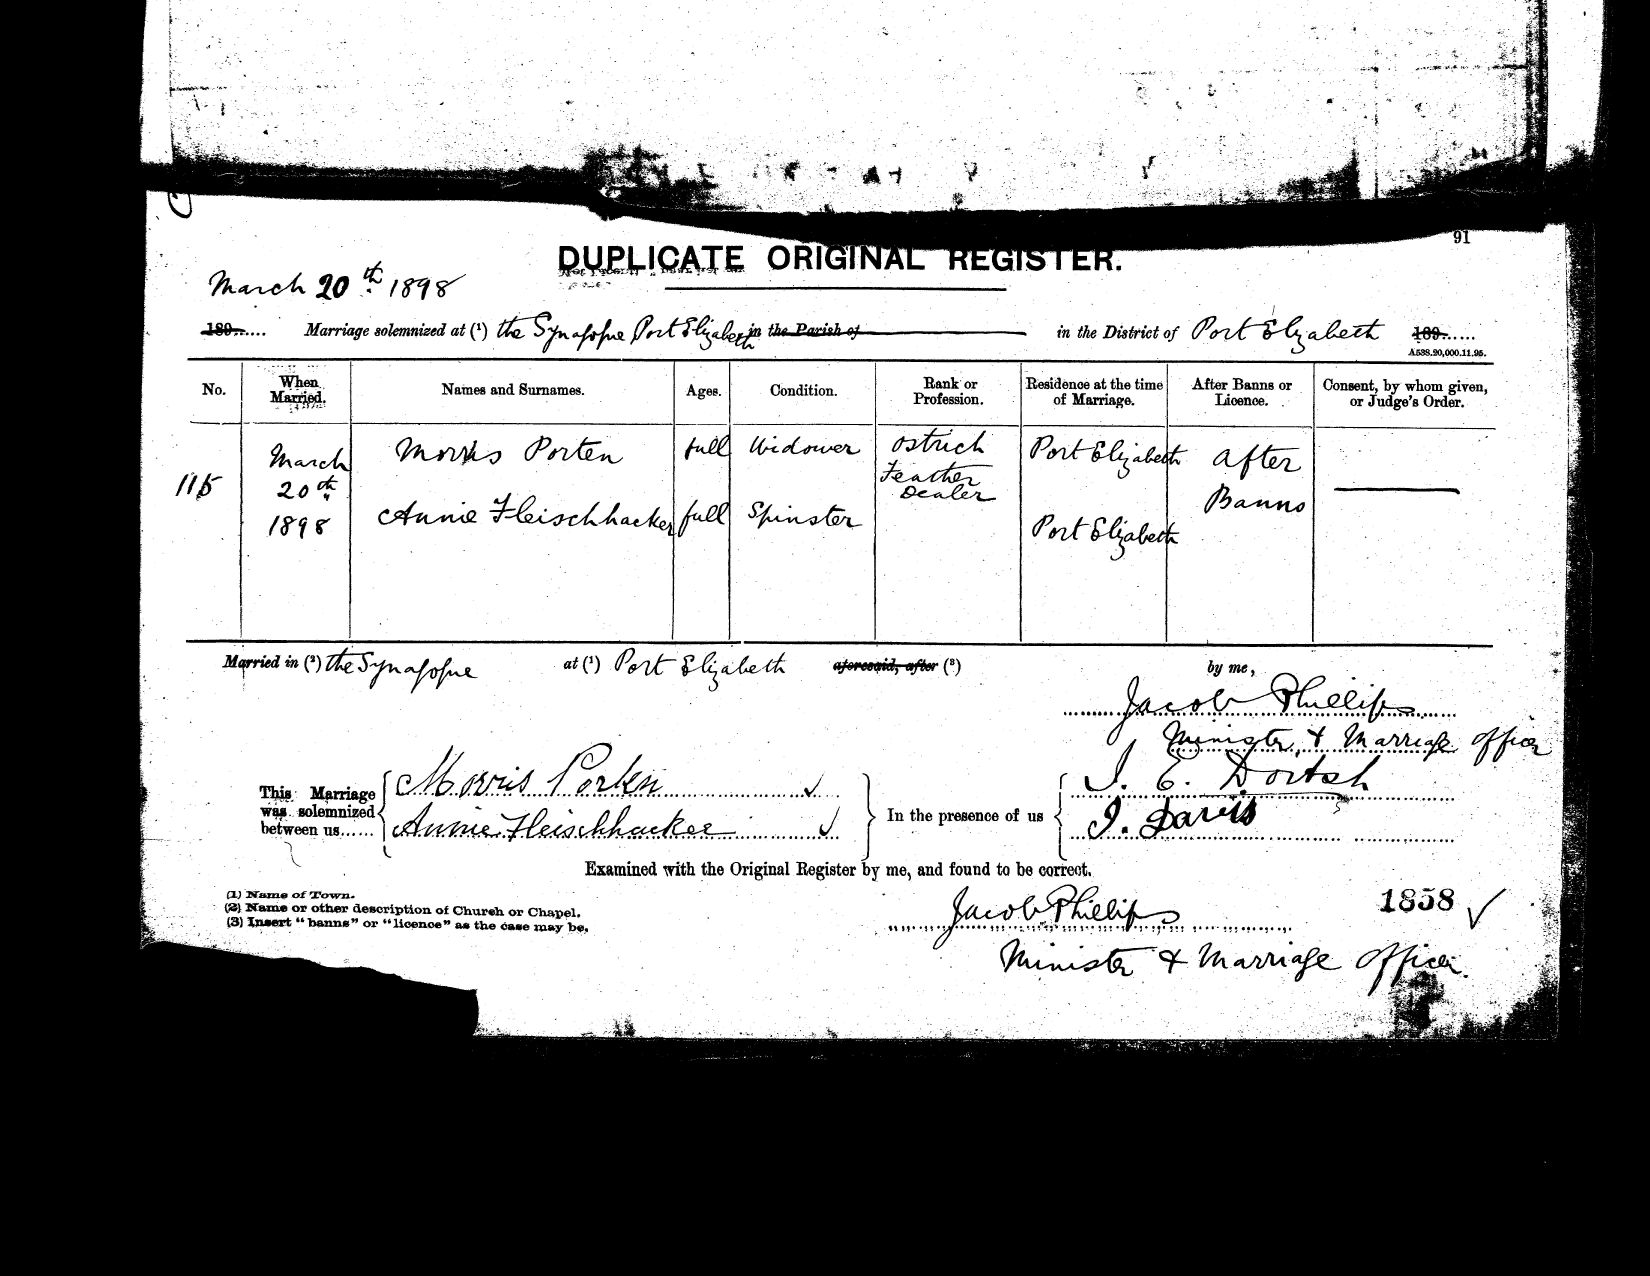 91
DUPLICATE ORIGINAL REGISTER.
March 20th 1898
189...... Marriage solemnized at (1) the Synagogue Port Elizabeth in the Parish of in the District of Port Elizabeth 189......
A538.20,000.11.95.
No. When Married. Names and Surnames. Ages. Condition. Rank or Profession. Residence at the time of Marriage. After Banns or Licence. Consent, by whom given, or Judge's Order.
115 March 20th 1898 Morris Porten full Widower Ostrich Feather Dealer Port Elizabeth After Banns
Annie Fleischhacker full Spinster Port Elizabeth
Married in (2) the Synagogue at (1) Port Elizabeth aforesaid, after (3) by me,
Jacob Phillips
Minister & Marriage Officer
This Marriage was solemnized between us...... Morris Porten
Annie Fleischhacker
In the presence of us
I. Davis
Examined with the Original Register by me, and found to be correct.
(1) Name of Town.
(2) Name or other description of Church or Chapel.
(3) Insert "banns" or "licence" as the case may be.
Jacob Phillips
1858
Minister & Marriage Officer.